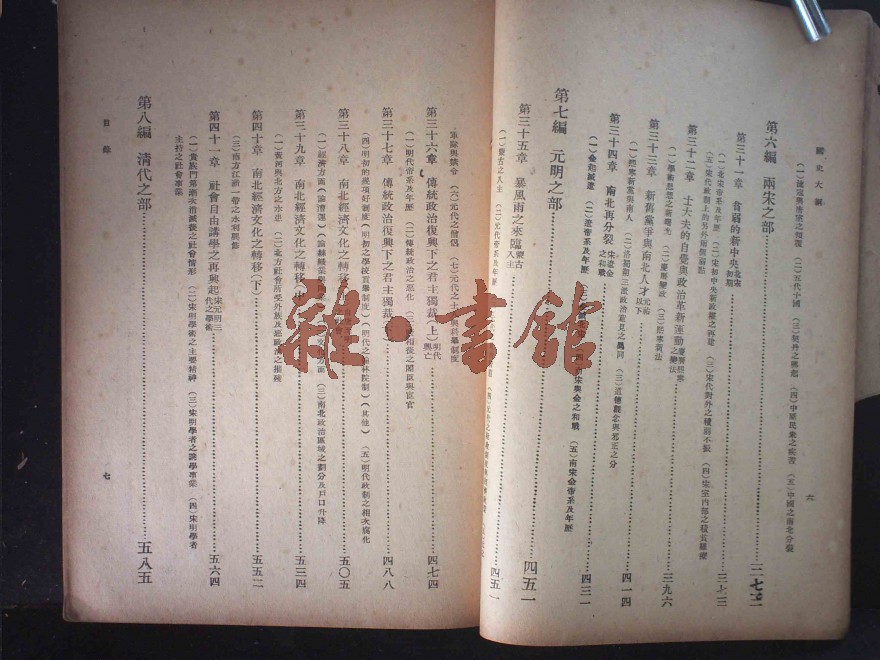 國史大綱
六
(二)五代十國
(四)中原民衆之疾苦 (五)中國之南北分裂
第六編 兩宋之部 三七三
第三十一章 貧弱的新中央 北宋初期 三七三
(一)北宋帝系及年歷 (二)宋初中央新政權之再建 (三)宋代對外之積弱不振 (四)宋室內部之積貧難療
(五)宋代政制上的另外兩個弱點
第三十二章 士大夫的自覺與政治革新運動 慶曆熙寧之變法 三九六
(一)學術思想之新曙光 (二)慶曆變政 (三)熙寧新法
第三十三章 新舊黨爭與南北人才 元祐以下 四一四
(一)熙寧新黨與南人 (二)洛蜀朔三派政治意見之異同 (三)道德觀念與邪正之分
第三十四章 南北再分裂 宋遼金之和戰 四三一
(一)金起滅遼 (二)遼帝系及年歷 (四)南宋與金之和戰 (五)南宋金帝系及年歷
第七編 元明之部 四五一
第三十五章 暴風雨之來臨 蒙古入主 四五一
(一)蒙古之入主 (二)元代帝系及年歷
軍隊與禁令 (六)元代之僧侶 (七)元代之士與科舉制度
第三十六章 傳統政治復興下之君主獨裁(上) 明代興亡 四七四
(一)明代帝系及年歷 (二)傳統政治之惡化 (三)廢相後之閣臣與宦官
第三十七章 傳統政治復興下之君主獨裁 四八八
(四)明初的幾項好制度 (明初之學校貢舉制度) (明代之翰林院制) (其他) (五)明代政制之相次腐化
第三十八章 南北經濟文化之轉移 五〇五
(一)經濟方面 (論漕運) (三)南北政治區域之劃分及戶口升降
第三十九章 南北經濟文化之轉移(中) 五三四
(一)黃河與北方之水患 (二)北方社會所受外族及惡政治之摧殘
第四十章 南北經濟文化之轉移(下) 五五二
(三)南方江浙一帶之水利興修
第四十一章 社會自由講學之再興起 宋元明三代之學術 五六四
(一)貴族門第漸次消滅後之社會情形 (二)宋明學術之主要精神 (三)宋明學者之講學事業 (四)宋明學者
主持之社會事業
第八編 清代之部 五八五
目錄
七
雜·書館